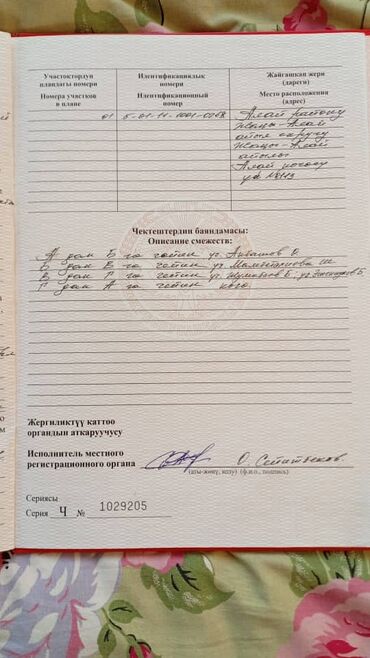 Участоктордун
пландагы номери
Номера участков
в плане
Идентификациялык
номери
Идентификационный
номер
Жайгашкан жери
(дареги)
Место расположения
(адрес)
01
5-01-11-1001-0268
Алай району
Жаңы-Алай
айыл округу
Жаңы-Алай
айылы
Алай көчөсү
Чектештердин баяндамасы:
Описание смежеств:
А дан Б га чейин уч.
Б дан В га чейин уч.
В дан Г га чейин уч.
Г дан А га чейин көчө.
Жергиликтүү каттоо
органдын аткаруучусу
Исполнитель местного
регистрационного органа
О. Сейитбеков.
(аты-жөнү, колу) (ф.и.о., подпись)
Сериясы
Серия Ч № 1029205